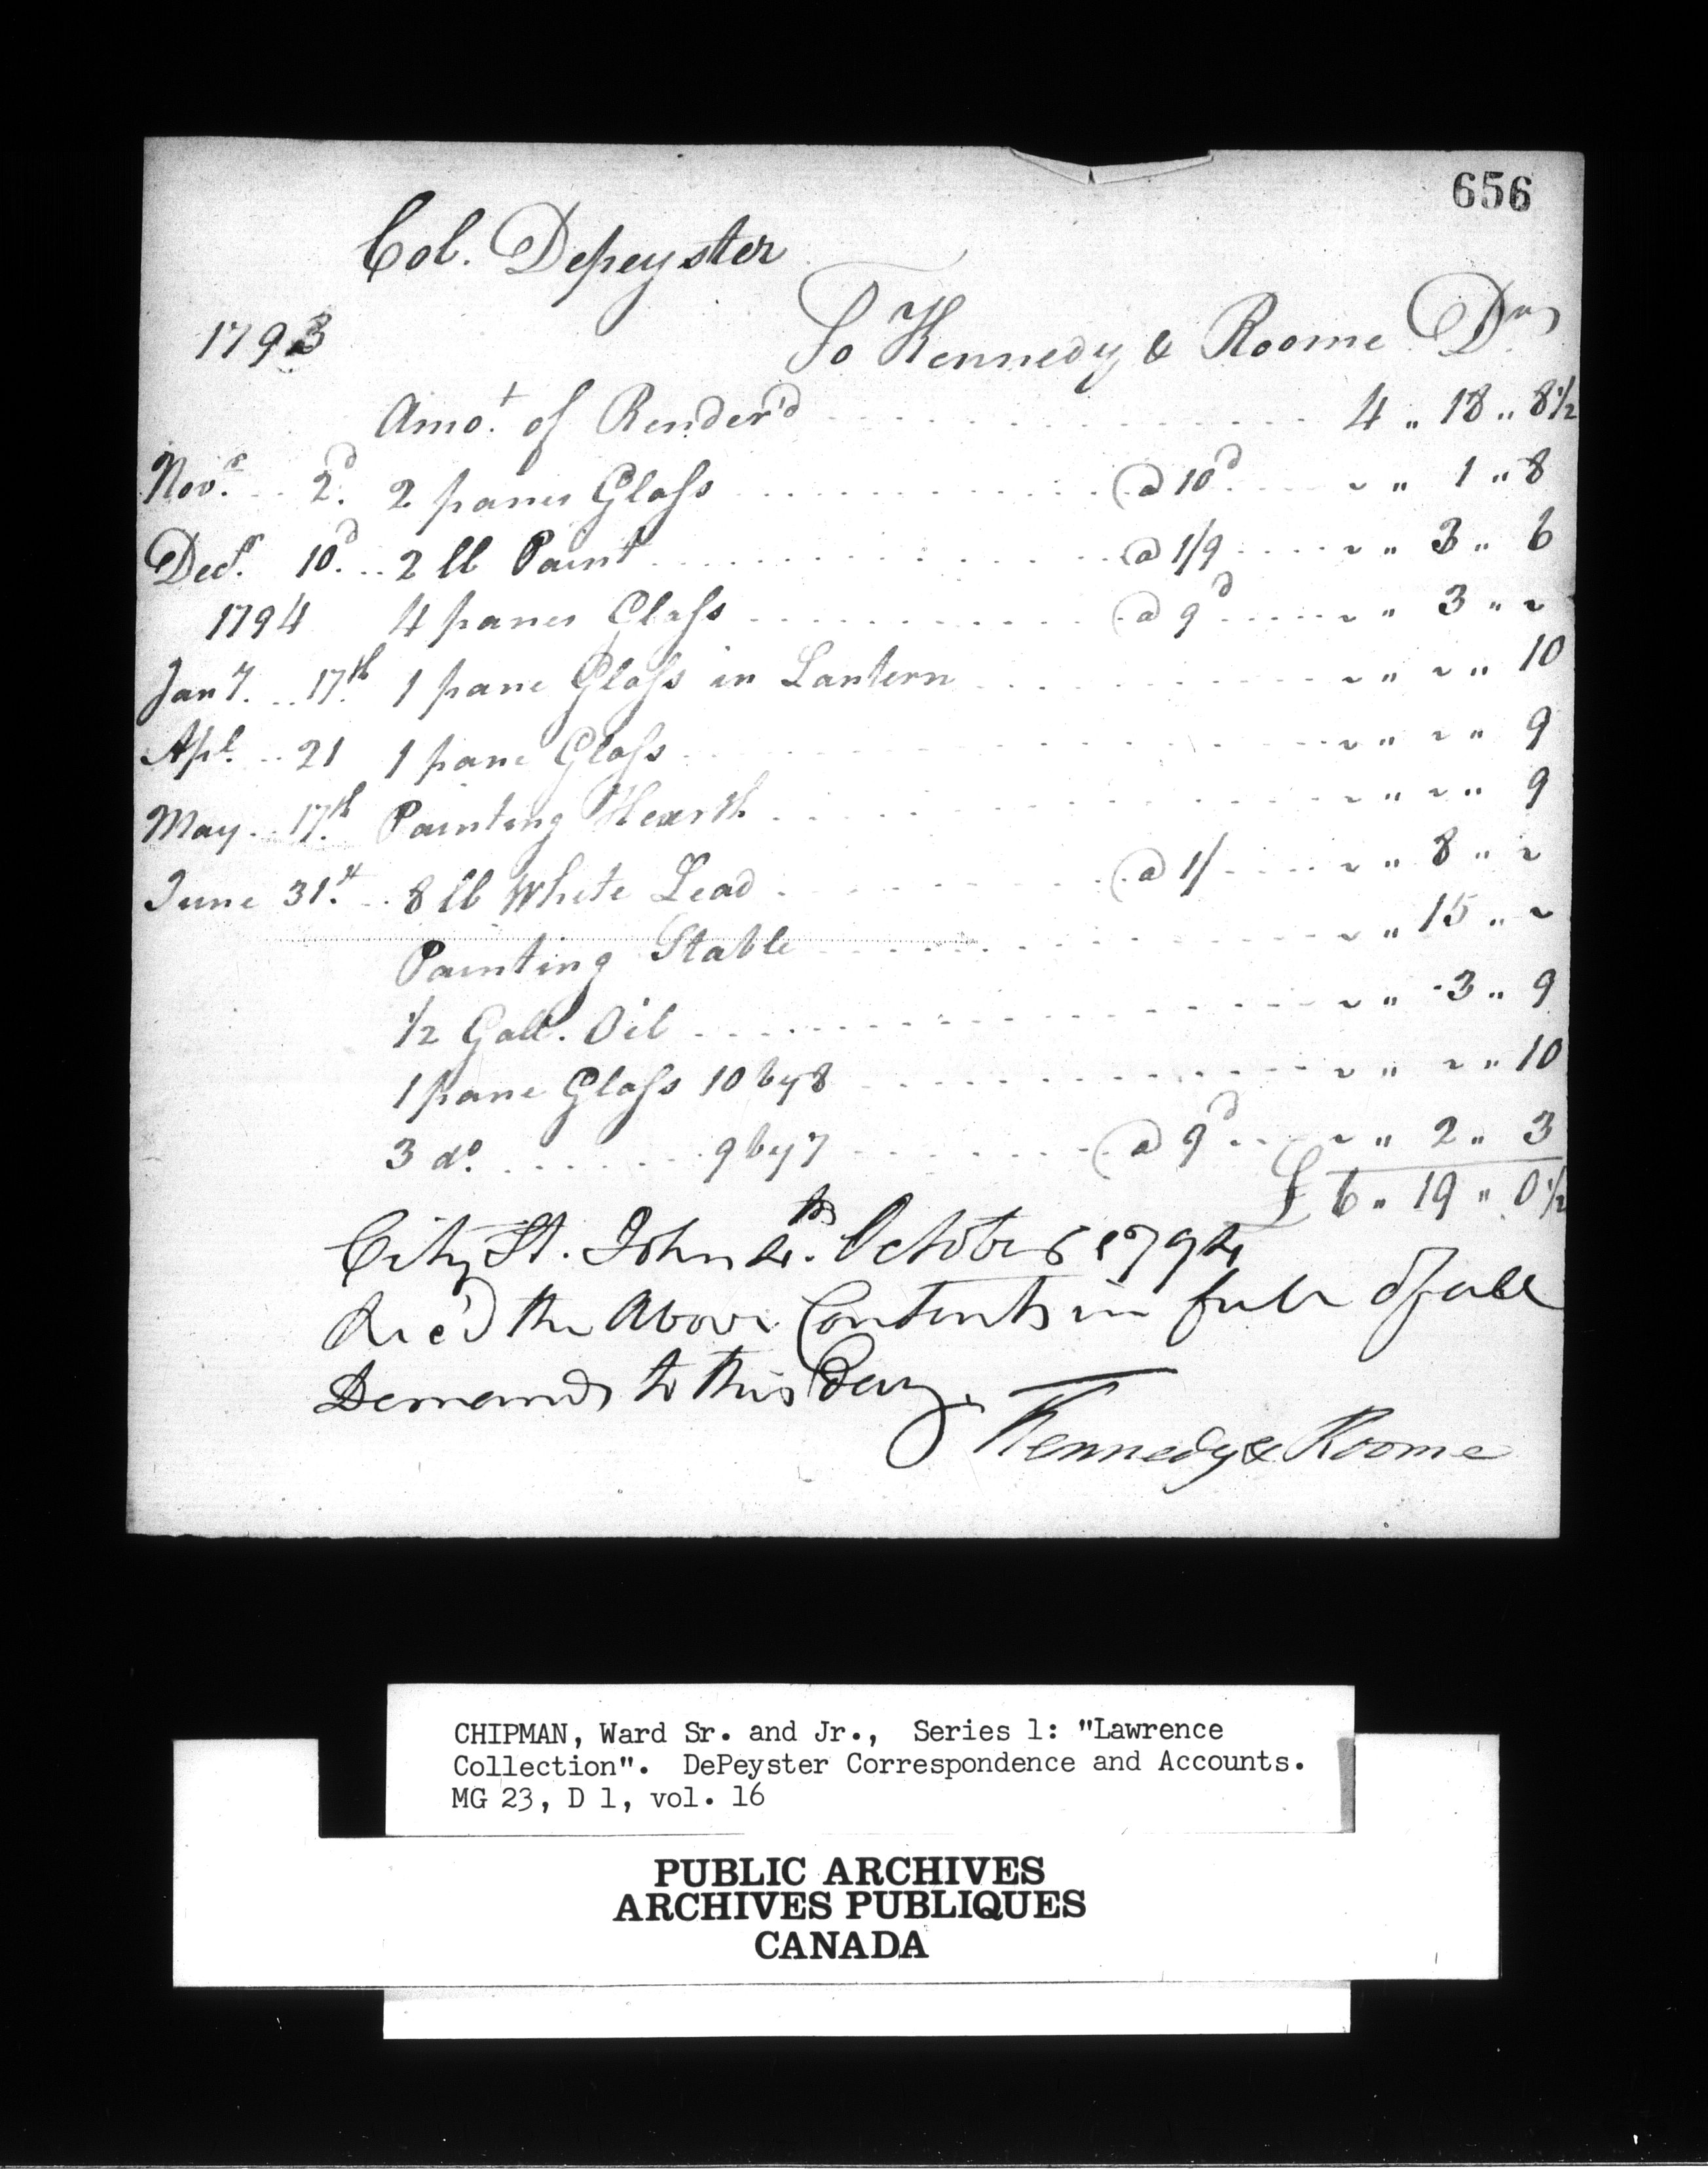 656
Col. Depeyster
1793 To Kennedy & Roome Drs
Amot. of Render'd 4 „ 18 „ 8½
Novr. 2d. 2 panes Glass @ 10d ~ „ 1 „ 8
Decr. 10d. 2 lb Paint @ 1/9 ~ „ 3 „ 6
1794 4 panes Glass @ 9d ~ „ 3 „ ~
Jany. 17th 1 pane Glass in Lantern ~ „ ~ „ 10
Apl. 21 1 pane Glass ~ „ ~ „ 9
May 17th Painting Hearth ~ „ ~ „ 9
June 31st. 8 lb White Lead @ 1/ ~ „ 8 „ ~
Painting Stable ~ „ 15 „ ~
1/2 Gall. Oil ~ „ 3 „ 9
1 pane Glass 10 by 8 ~ „ ~ „ 10
3 do. 9 by 7 @ 9d ~ „ 2 „ 3
£ 6 „ 19 „ 0½
City St. John 4th. October 1794
Rec'd the Above Contents in full of all
Demands to this Day.
Kennedy & Roome
CHIPMAN, Ward Sr. and Jr., Series 1: "Lawrence
Collection". DePeyster Correspondence and Accounts.
MG 23, D 1, vol. 16
PUBLIC ARCHIVES
ARCHIVES PUBLIQUES
CANADA